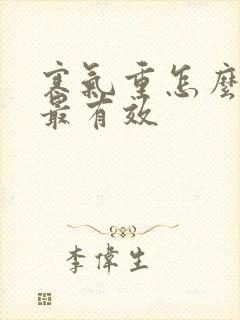 寒氣重怎麼
最有效
李偉生